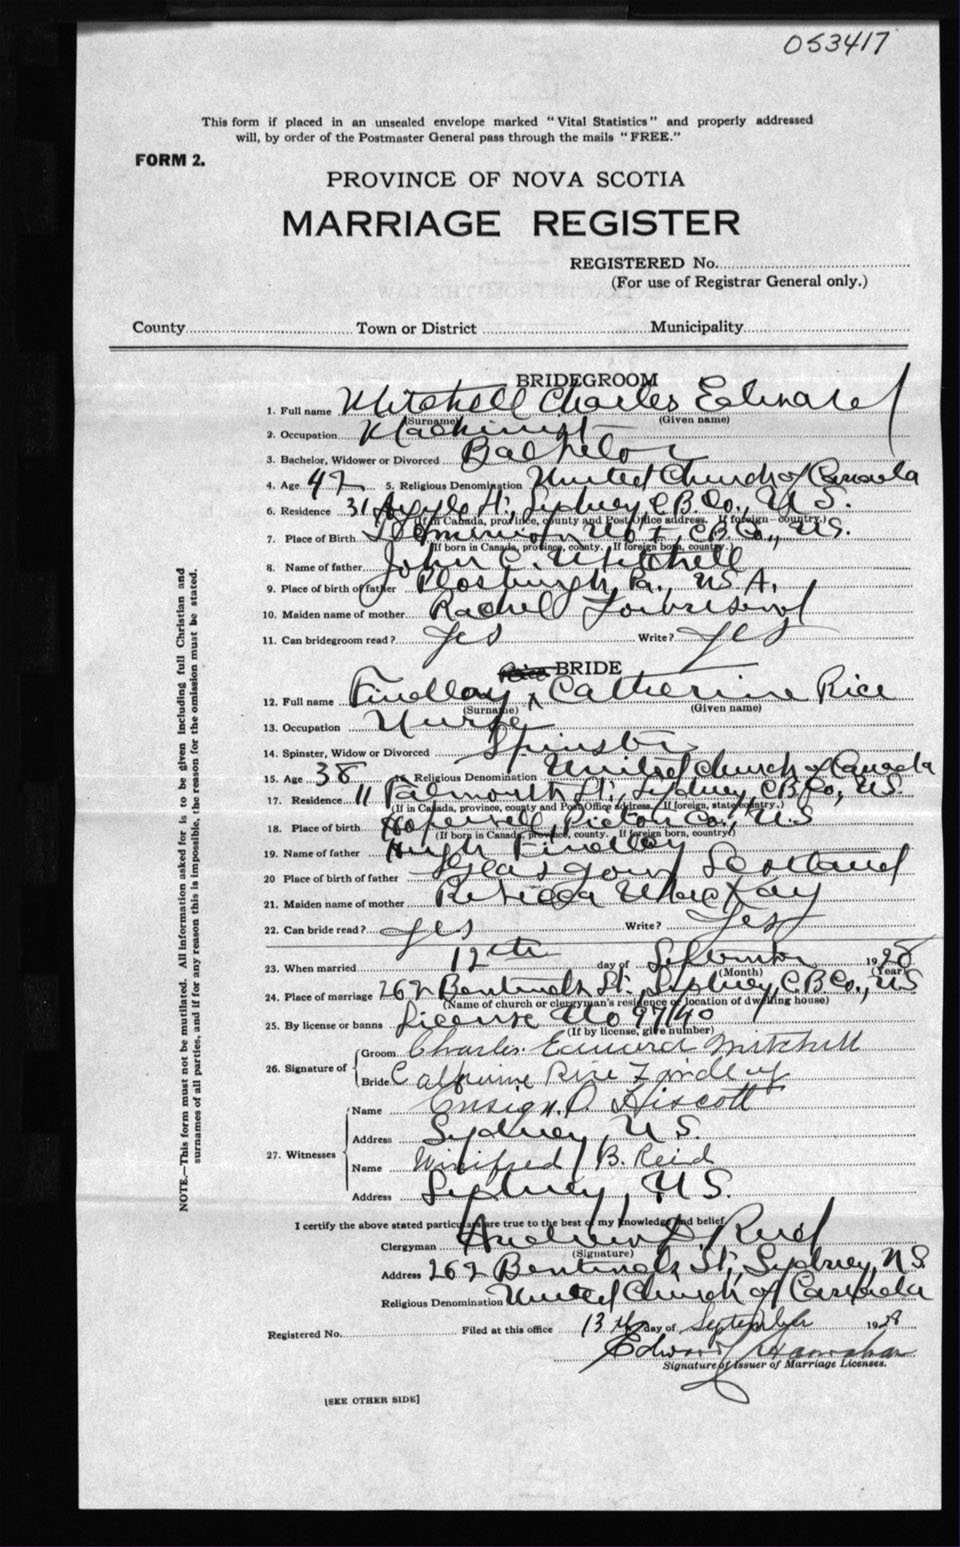 053417
This form if placed in an unsealed envelope marked "Vital Statistics" and properly addressed
will, by order of the Postmaster General pass through the mails "FREE."
FORM 2.
PROVINCE OF NOVA SCOTIA
MARRIAGE REGISTER
REGISTERED No.
(For use of Registrar General only.)
County Town or District Municipality
BRIDEGROOM
1. Full name Mitchell Charles Edward
(Surname) (Given name)
2. Occupation Machinist
3. Bachelor, Widower or Divorced Bachelor
4. Age 42 5. Religious Denomination United Church of Canada
6. Residence 31 Argyle St., Sydney, C.B. Co., N.S.
(If in Canada, province, county and Post Office address. If foreign—country.)
7. Place of Birth Dominion No 1, C.B. Co., N.S.
(If born in Canada, province, county. If foreign born, country.)
8. Name of father John C. Mitchell
9. Place of birth of father Pa., U.S.A.
10. Maiden name of mother Rachel
11. Can bridegroom read? Yes Write? Yes
BRIDE
12. Full name Findlay ^ Catherine Rice
(Surname) (Given name)
13. Occupation Nurse
14. Spinster, Widow or Divorced Spinster
15. Age 38 Religious Denomination United Church of Canada
17. Residence 11 Falmouth St., Sydney, C.B. Co., N.S.
(If in Canada, province, county and Post Office address. If foreign, state country.)
18. Place of birth Hopewell, Pictou Co., N.S
(If born in Canada, province, county. If foreign born, country)
19. Name of father Hugh Findlay
20 Place of birth of father Glasgow Scotland
21. Maiden name of mother Rebecca MacKay
22. Can bride read? Yes Write? Yes
23. When married 12th day of September 1928
(Month) (Year)
24. Place of marriage 262 Bentinck St., Sydney, C.B. Co., N.S
(Name of church or clergyman's residence or location of dwelling house)
25. By license or banns License No 97140
(If by license, give number)
26. Signature of Groom Charles Edward Mitchell
Bride Catherine Rice Findlay
27. Witnesses Name Ensign D. Hiscott
Address Sydney, N.S.
Name Winifred B. Reid
Address Sydney, N.S.
I certify the above stated particulars are true to the best of my knowledge and belief.
Clergyman Andrew D Reid
(Signature)
Address 262 Bentinck St., Sydney, N.S
Religious Denomination United Church of Canada
Registered No. Filed at this office 13th day of September 1928
Edward
Signature of Issuer of Marriage Licenses.
[SEE OTHER SIDE]
NOTE.—This form must not be mutilated. All information asked for is to be given including full Christian and
surnames of all parties, and if for any reason this is impossible, the reason for the omission must be stated.